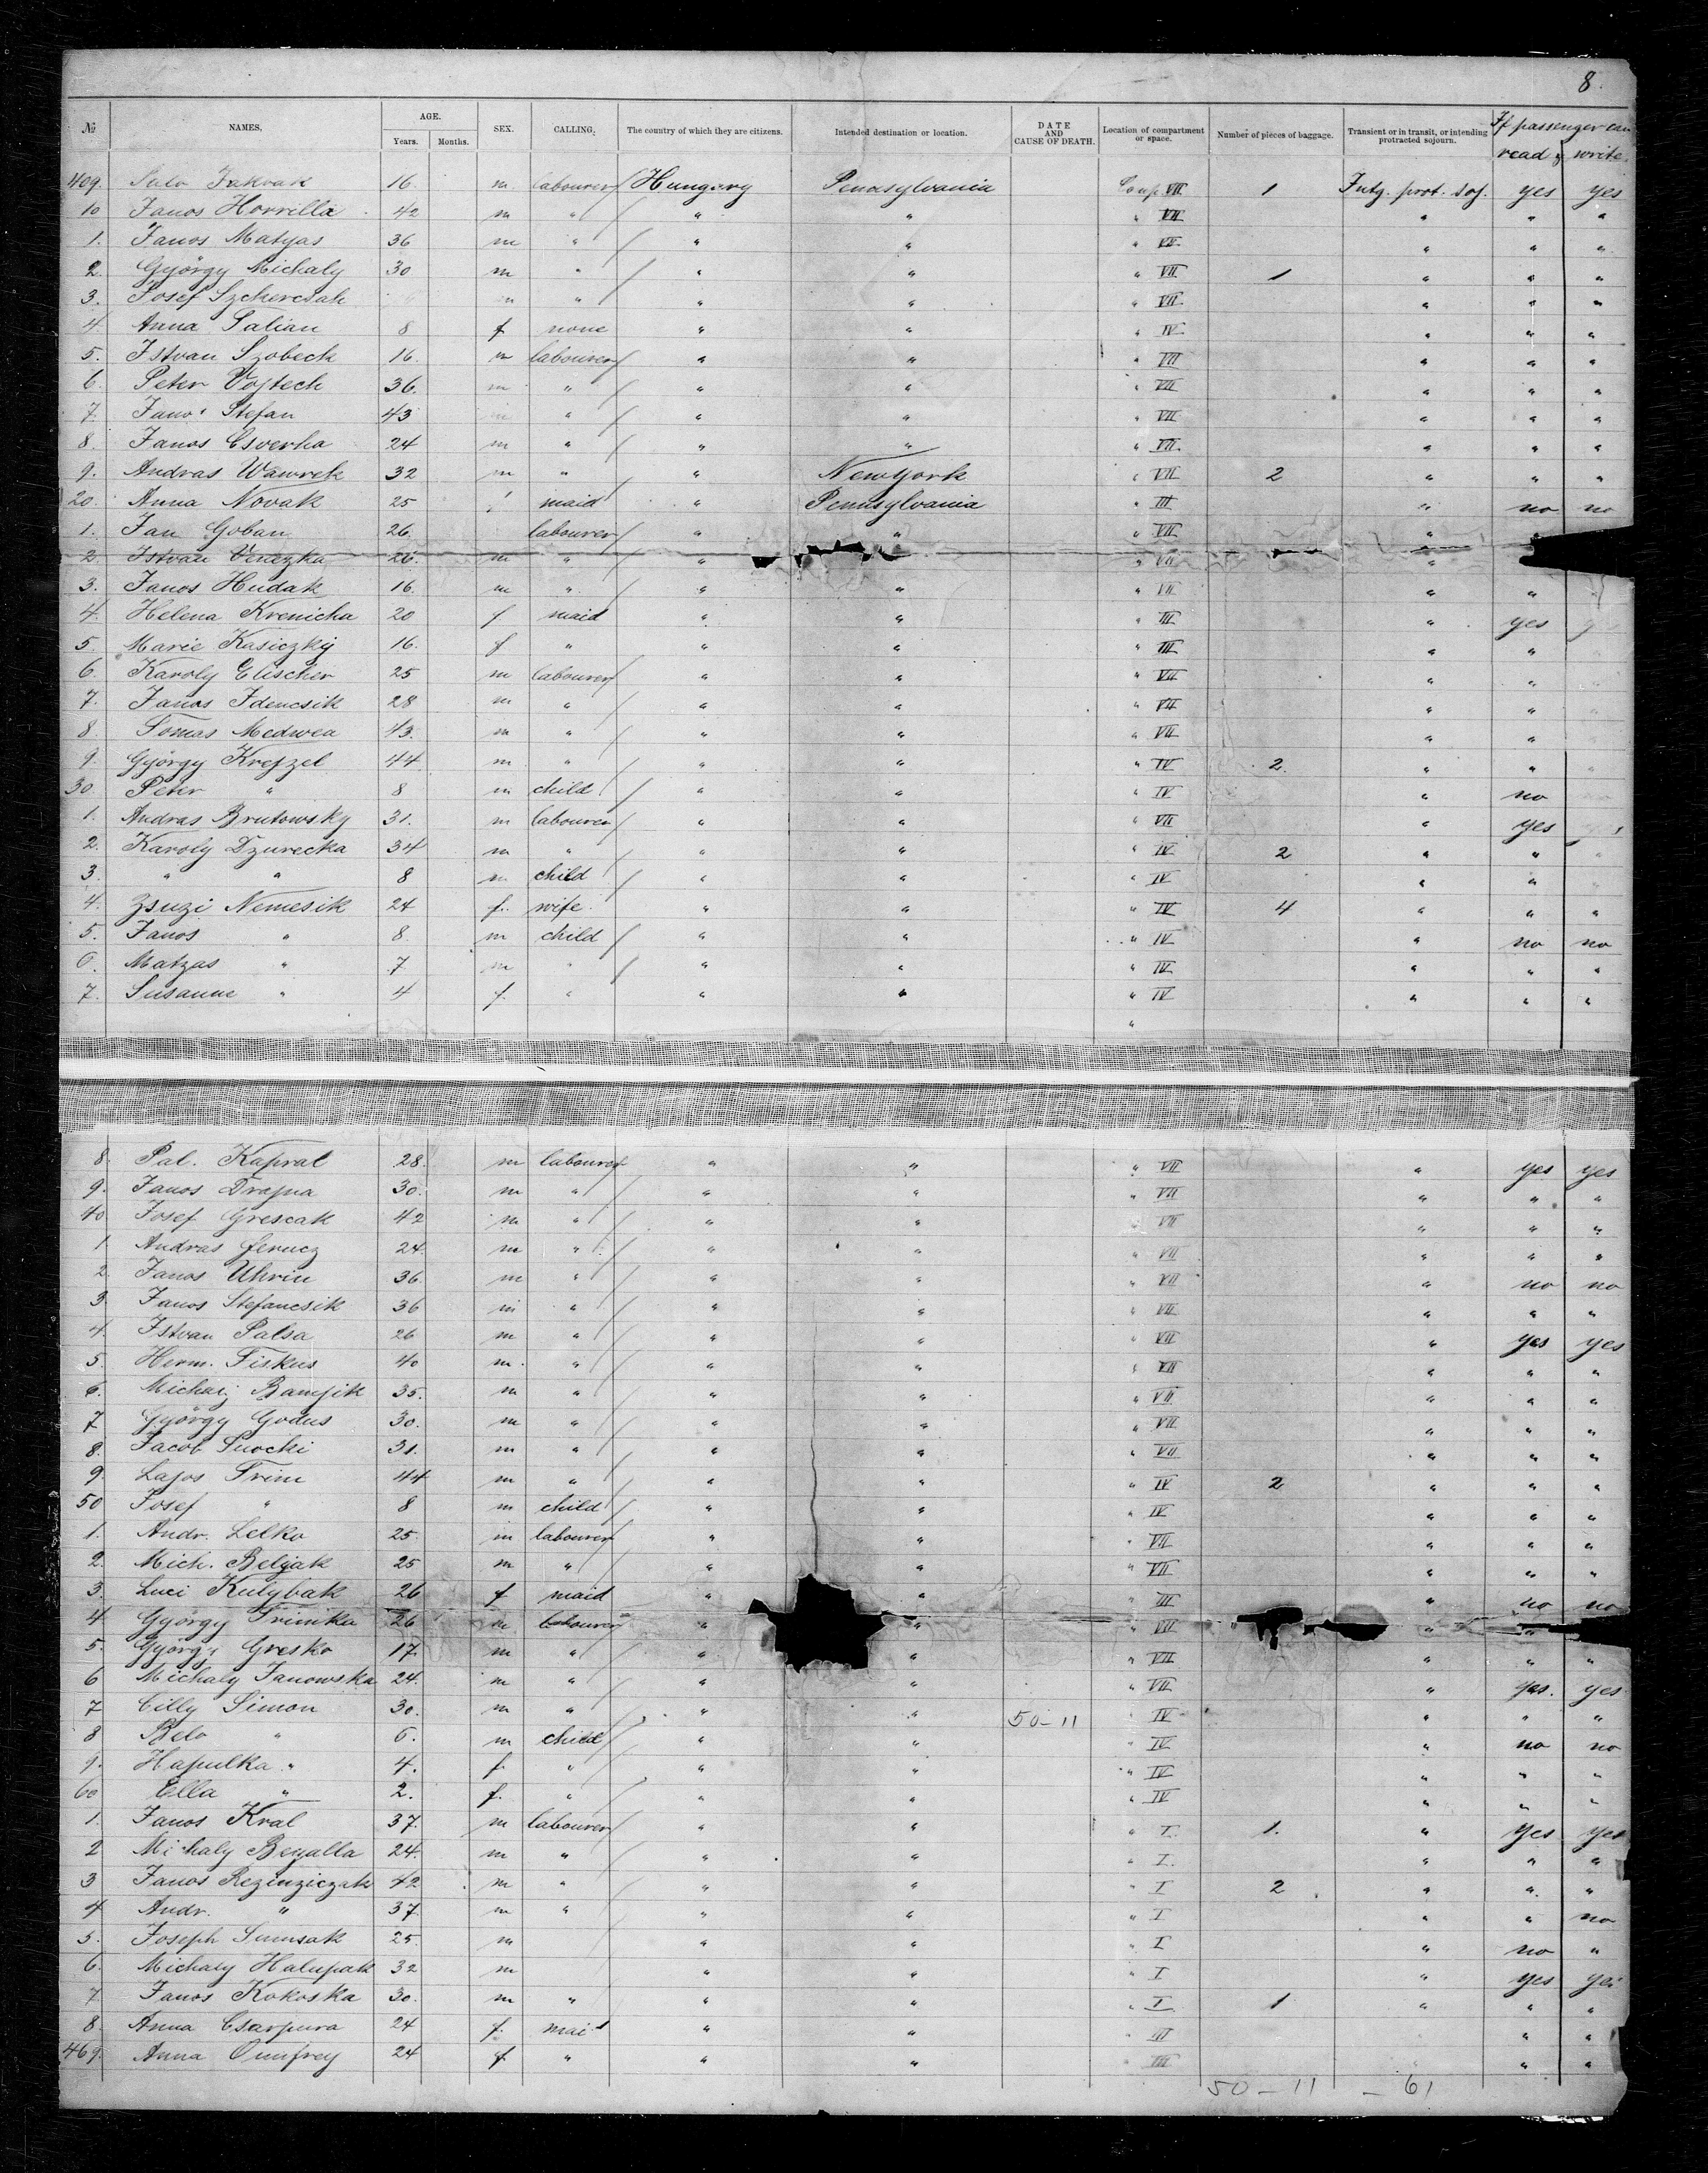 8.
№ NAMES. AGE. Years. Months. SEX. CALLING. The country of which they are citizens. Intended destination or location. DATE AND CAUSE OF DEATH. Location of compartment or space. Number of pieces of baggage. Transient or in transit, or intending protracted sojourn. If passenger can read & write
409. 16. m labourer Hungary Pennsylvania Comp. VII 1 Intg. prot. soj. yes yes
10 Janos Horrilla 42 m " " " " VII " " "
1. Janos Matyas 36 m " " " " VII " " "
2. György Michaly 30 m " " " " VII 1 " " "
3. Josef m " " " " VII " " "
4. Anna Palian 8 f none " " " IV " " "
5. Istvan Szobeck 16. m labourer " " " VII " " "
6. Peter Vojtech 36. m " " " " VII " " "
7. Janos Stefan 43 m " " " " VII " " "
8. Janos Csverha 24 m " " " " VII " " "
9. Andras Wawrek 32 m " " New York " VII 2 " " "
20. Anna Novak 25 maid " Pennsylvania " III " no no
1. Jan Goban 26. labourer " " " VII "
2. Istvan 26. m " " " VII "
3. Janos Hudak 16. m " " " " VII " "
4. Helena Krenicha 20 f maid " " " III " yes
5. Marie Kasiczky 16. f " " " " III " "
6. Karoly Elischer 25 m labourer " " " VII " "
7. Janos Idencsik 28 m " " " " VII " "
8. Tomas Medwea 43. m " " " " VII " "
9. György Krejzel 44 m " " " " IV 2. " "
30. Peter " 8 m child " " " IV " no
1. Andras Brutowsky 31. m labourer " " " VII " yes
2. Karoly Dzurecka 34 m " " " " IV 2 " " "
3. " " 8 m child " " " IV " " "
4. Zsuzi Nemesik 24 f. wife " " " IV 4 " " "
5. Janos " 8. m child " " " IV " no no
6. Matzas " 7 m " " " " IV " " "
7. Susanne " 4 f. " " " " IV " " "
"
8. Pal. Kapral 28. m labourer " " " VII " yes yes
9. Janos Drajna 30. m " " " " VII " " "
40 Josef Grescak 42 m " " " " VII " " "
1 Andras Ferucz 24. m " " " " VII " " "
2. Janos Uhrin 36. m " " " " VII " no no
3. Janos Stefancsik 36 m " " " " VII " " "
4. Istvan Palsa 26 m " " " " VII " yes yes
5. Herm. Fiskus 40 m. " " " " VII " " "
6. Michaij 35. m " " " " VII " " "
7 György Godus 30. m " " " " VII " " "
8. Jacob Snocki 31. m " " " " VII " " "
9. Lajos Trim 44 m " " " " IV 2 " " "
50 Josef " 8 m child " " " IV " " "
1. Andr. Lelko 25. m labourer " " " VII " " "
2. Mich. Beljak 25 m " " " " VII " " "
3. Luci Kulybak 26 f maid " " " III " no no
4 György Trimka 26 m labourer " " " VII " "
5. György Gresko 17. m " " " " VII " " "
6 Michaly Janowska 24. m " " " " VII " yes. yes
7 Cilly Simon 30. m " " " 50-11 " IV " " "
8 Bela " 6. m child " " " IV " no no
9. Hapulka " 4. f. " " " " IV " " "
60 Ella " 2. f. " " " " IV " " "
1. Janos Kral 37. m labourer " " " I 1. " yes yes
2 Michaly Begalla 24. m " " " " I. " " "
3 Janos Rezinziczak 42 m " " " " I 2 " " "
4 Andr. " 37. m " " " " I " " no
5. Joseph Sumsak 25. m " " " I " no "
6. Michaly Halupak 32 m " " " I " yes yes
7. Janos Kokoska 30. m " " " " I 1 " " "
8. Anna Csarpura 24 f. maid " " " III " "
469. Anna Oumfrey 24 f " " " " III " "
50 - 11 - 61